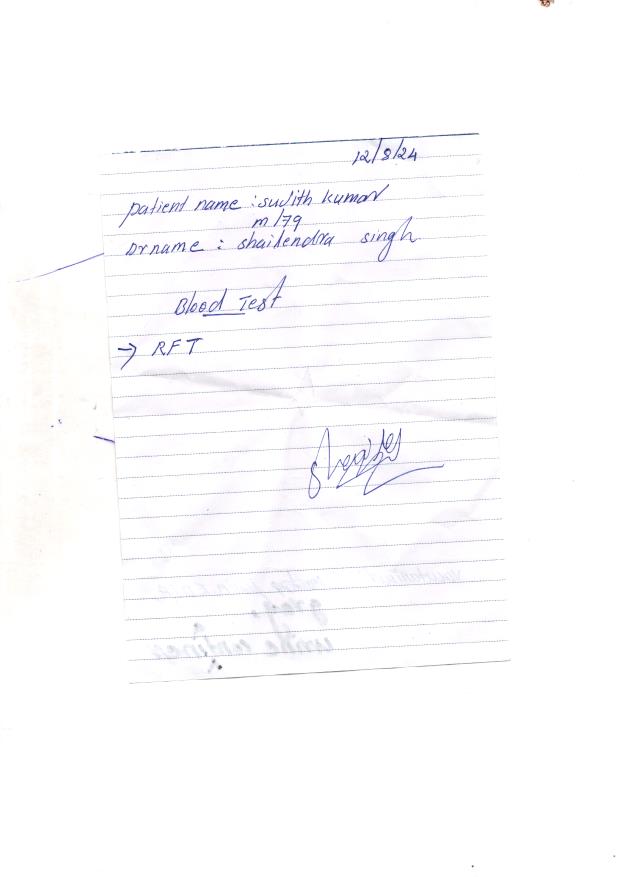 12/8/24
patient name : sujith kumar
m/79
Dr name : shailendra singh
Blood Test
→ RFT